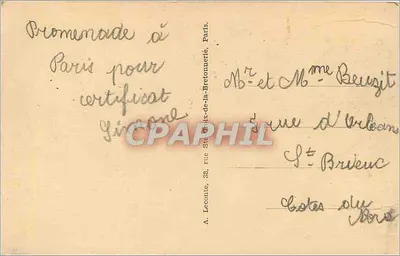 Promenade à
Paris pour
certificat
Simone
A. Leconte, 38, rue Ste-Croix-de-la-Bretonnerie, Paris.
Mr et Mme Beuzit
rue d'Orléans
St Brieuc
Cotes du
Nord
CPAPHIL